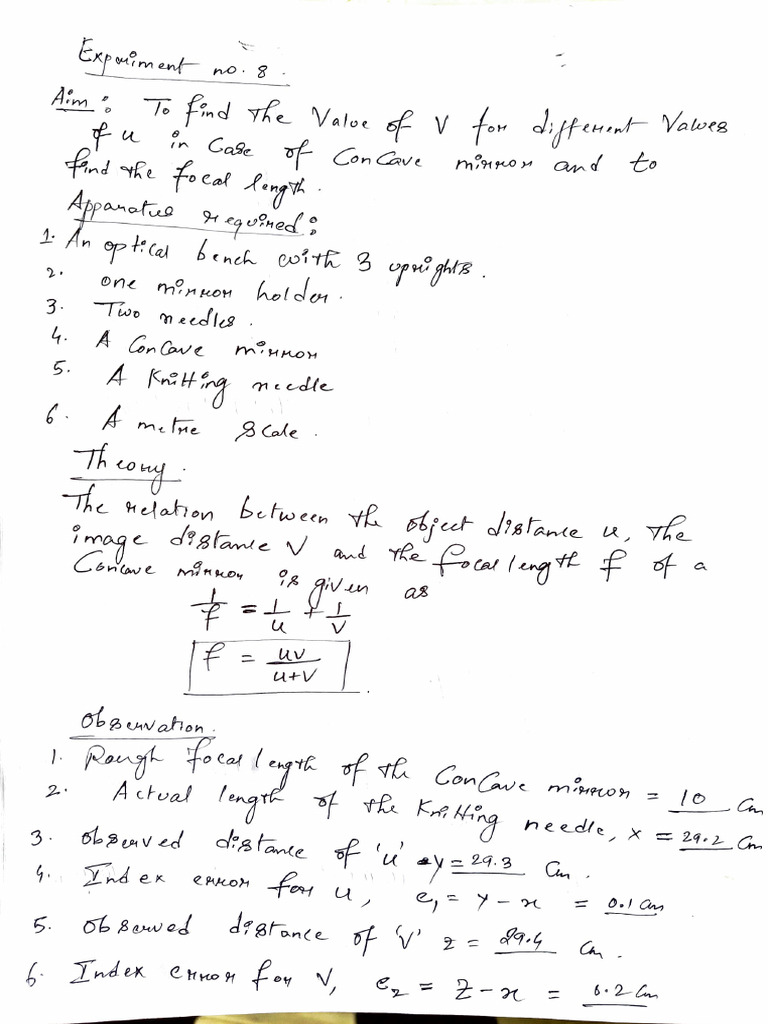 Experiment no. 8.
Aim: To find the Value of V for different Values
of u in Case of Concave mirror and to
find the focal length.
Apparatus required:
1. An optical bench with 3 uprights.
2. one mirror holder.
3. Two needles.
4. A Concave mirror
5. A Knitting needle
6. A metre Scale.
Theory.
The relation between the object distance u, The
image distance V and the focal length f of a
Concave mirror is given as
1/f = 1/u + 1/v
f = uv/u+v
Observation.
1. Rough focal length of the Concave mirror = 10 Cm
2. Actual length of the Knitting needle, x = 29.2 Cm
3. observed distance of 'u' y = 29.3 Cm.
4. Index error for u, e1 = y - x = 0.1 Cm
5. observed distance of 'v' z = 29.4 Cm.
6. Index error for V, e2 = Z - x = 0.2 Cm